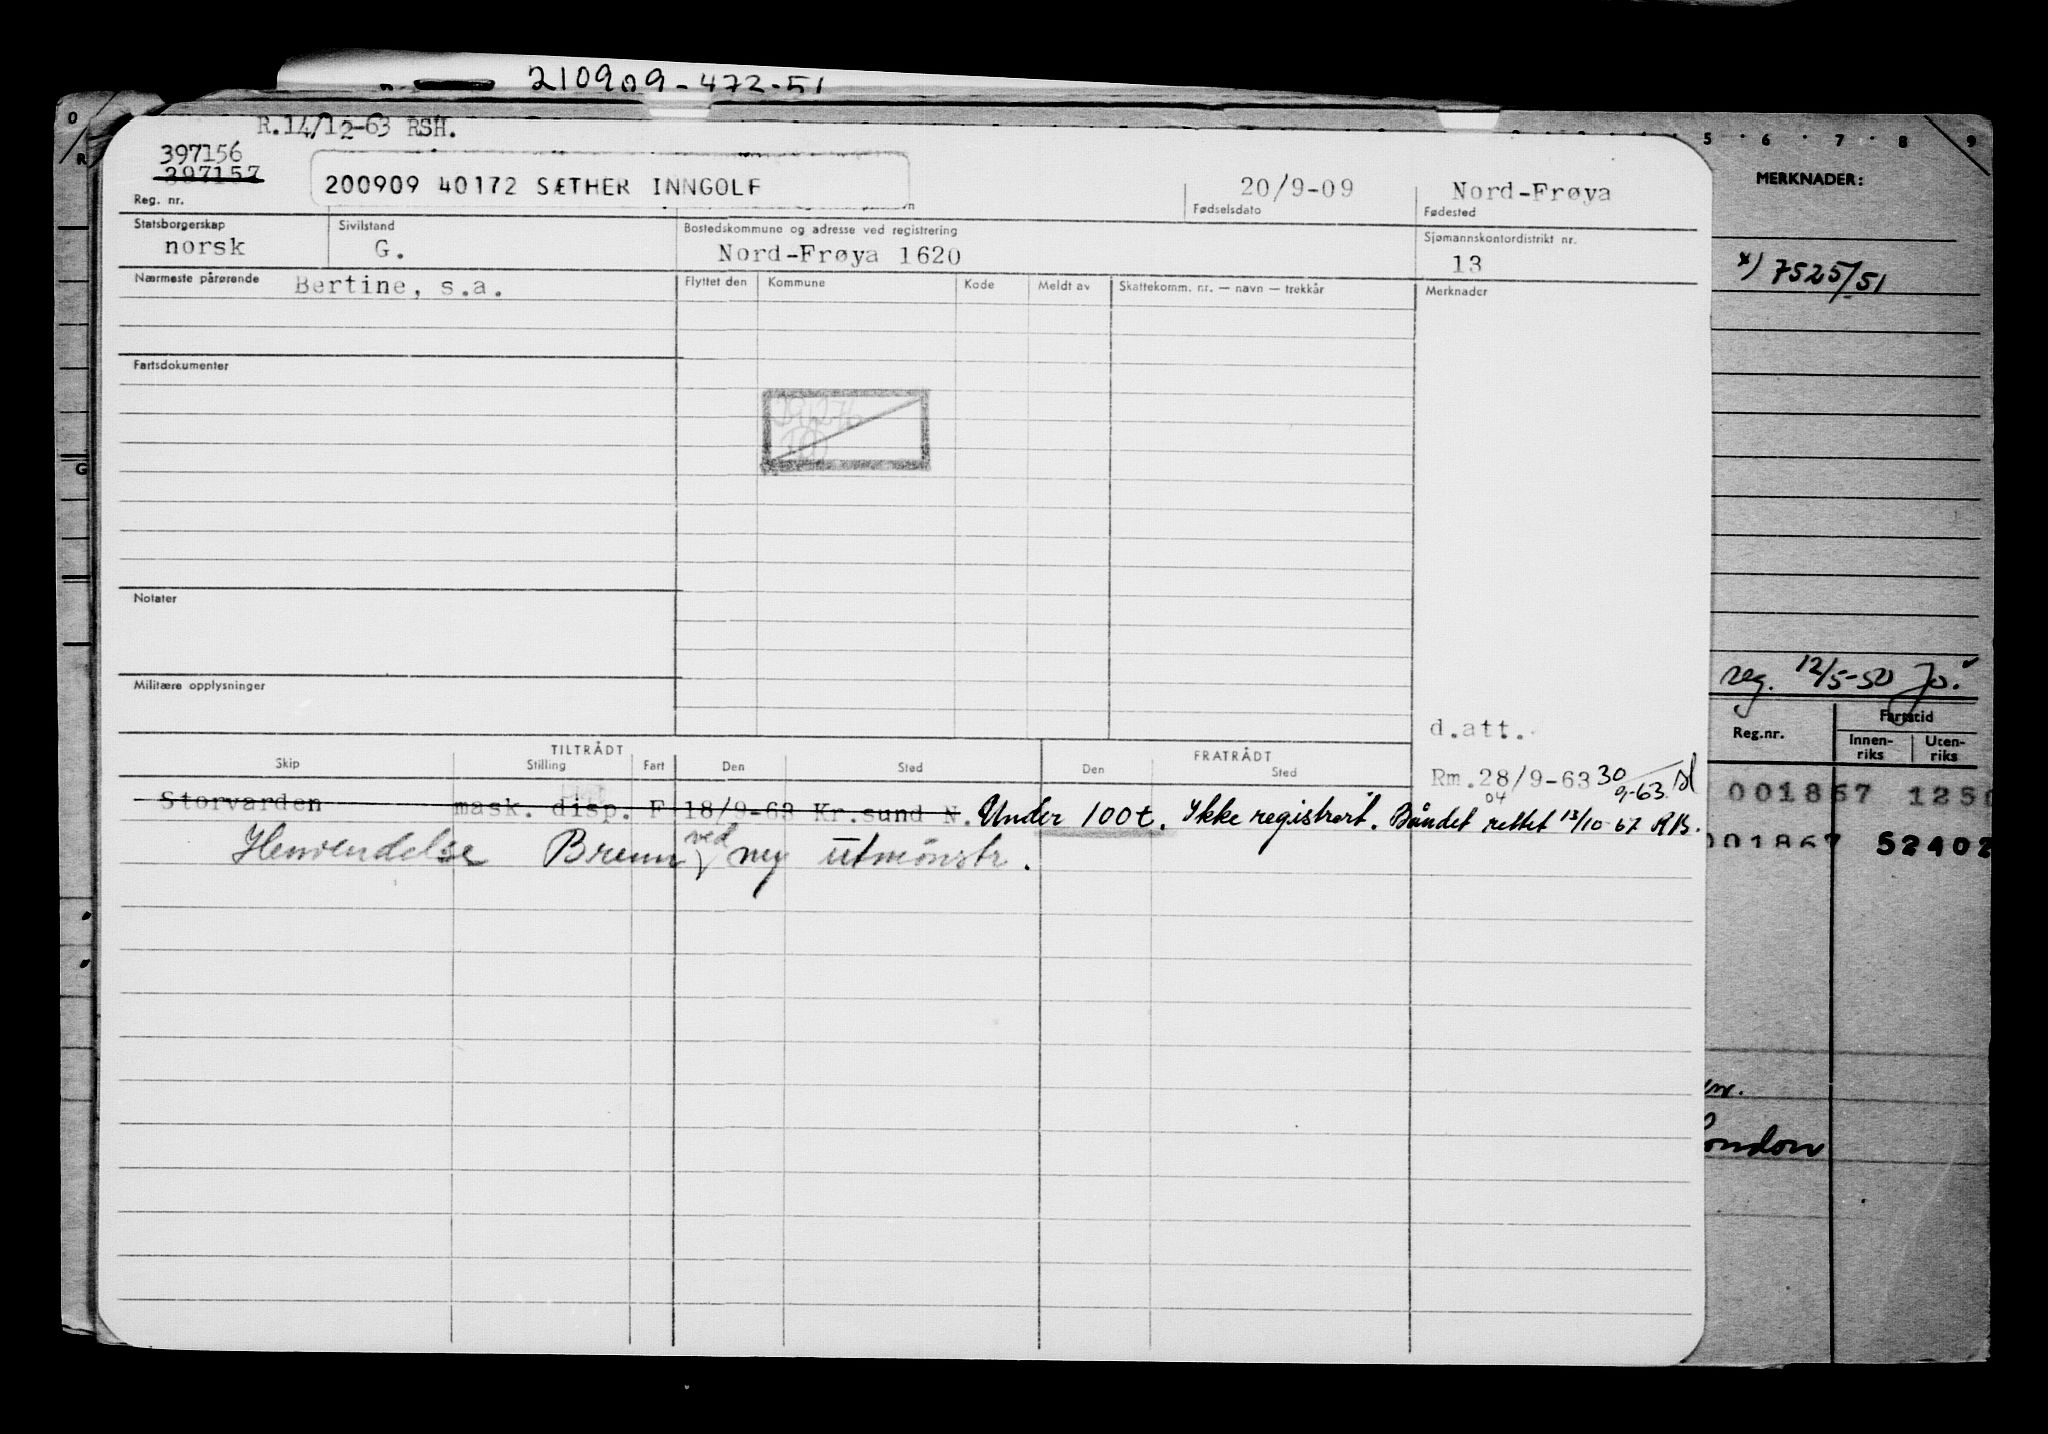 210909-472-51
R.14/12-63 RSH.
397156
397157
Reg. nr.
200909 40172 SÆTHER INNGOLF
20/9-09
Fødselsdato
Nord-Frøya
Fødested
Statsborgerskap
norsk
Sivilstand
G.
Bostedskommune og adresse ved registrering
Nord-Frøya 1620
Sjømannskontordistrikt nr.
13
Nærmeste pårørende Bertine, s.a.
Flyttet den Kommune Kode Meldt av Skattekomm. nr. — navn — trekkår
Merknader
Fartsdokumenter
Notater
Militære opplysninger
d.att.
TILTRÅDT FRATRÅDT
Skip Stilling Fart Den Sted Den Sted
Rm.28/9-63 30/9-63
Storvarden mask. disp. F 18/9-63 Kr.sund N. Under 100t. Ikke registrert. Båndet rettet 13/10-67 RB.
04
Henvendelse Brenn ved ny utmønstr.
0
R
G
5 6 7 8 9
MERKNADER:
x) 7525/51
reg. 12/5-50 Jo.
Reg.nr.
Fartstid
Innen-riks Uten-riks
001867 125
001867 52402
London